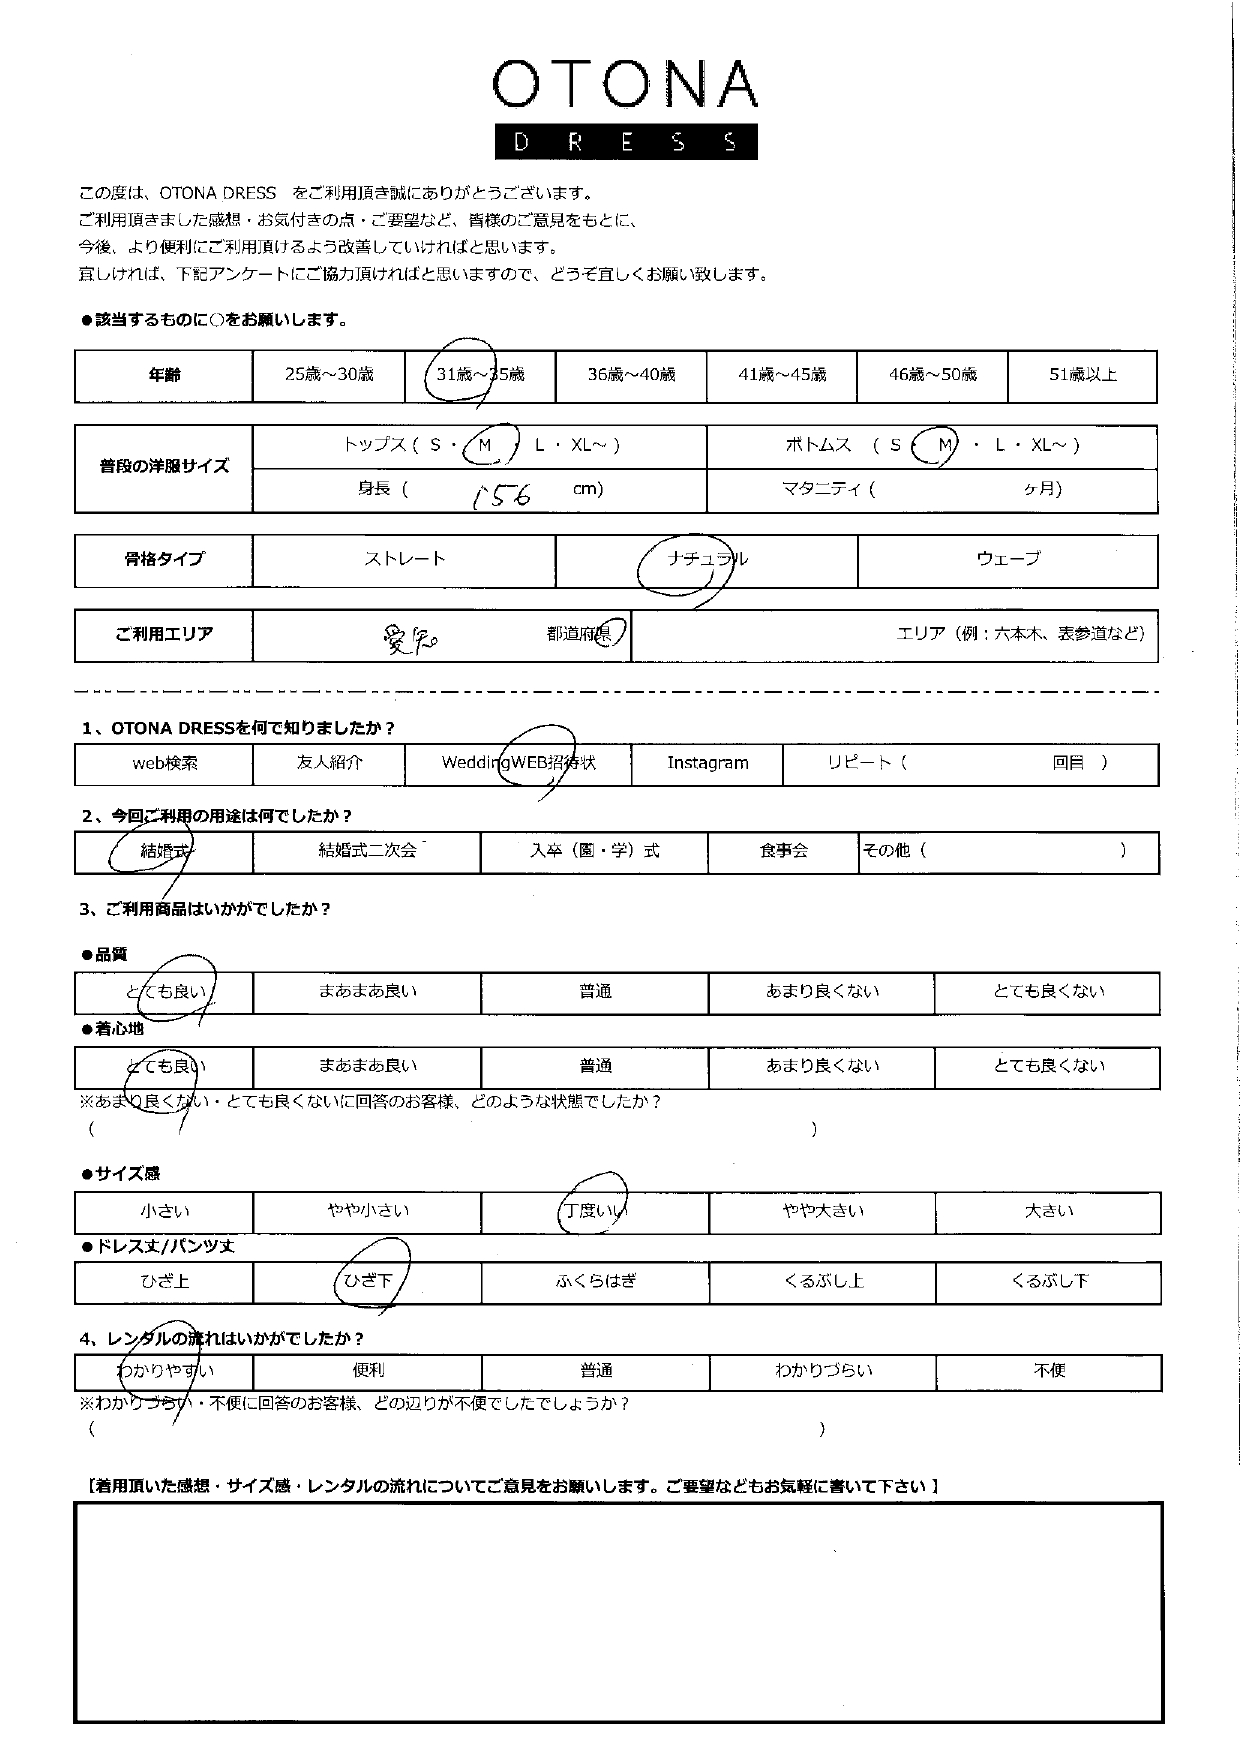 OTONA
DRESS
この度は、OTONA DRESS　をご利用頂き誠にありがとうございます。
ご利用頂きました感想・お気付きの点・ご要望など、皆様のご意見をもとに、
今後、より便利にご利用頂けるよう改善していければと思います。
宜しければ、下記アンケートにご協力頂ければと思いますので、どうぞ宜しくお願い致します。
●該当するものに○をお願いします。
年齢 25歳～30歳 31歳～35歳 36歳～40歳 41歳～45歳 46歳～50歳 51歳以上
普段の洋服サイズ トップス（ S ・ M ・ L ・ XL～ ） ボトムス （ S ・ M ・ L ・ XL～ ）
身長（ 156 cm） マタニティ（ ヶ月）
骨格タイプ ストレート ナチュラル ウェーブ
ご利用エリア 愛知 都道府県 エリア（例：六本木、表参道など）
1、OTONA DRESSを何で知りましたか？
web検索 友人紹介 WeddingWEB招待状 Instagram リピート（ 回目 ）
2、今回ご利用の用途は何でしたか？
結婚式 結婚式二次会 入卒（園・学）式 食事会 その他（ ）
3、ご利用商品はいかがでしたか？
●品質
とても良い まあまあ良い 普通 あまり良くない とても良くない
●着心地
とても良い まあまあ良い 普通 あまり良くない とても良くない
※あまり良くない・とても良くないに回答のお客様、どのような状態でしたか？
（ ）
●サイズ感
小さい やや小さい 丁度いい やや大きい 大きい
●ドレス丈/パンツ丈
ひざ上 ひざ下 ふくらはぎ くるぶし上 くるぶし下
4、レンタルの流れはいかがでしたか？
わかりやすい 便利 普通 わかりづらい 不便
※わかりづらい・不便に回答のお客様、どの辺りが不便でしたでしょうか？
（ ）
【着用頂いた感想・サイズ感・レンタルの流れについてご意見をお願いします。ご要望などもお気軽に書いて下さい 】